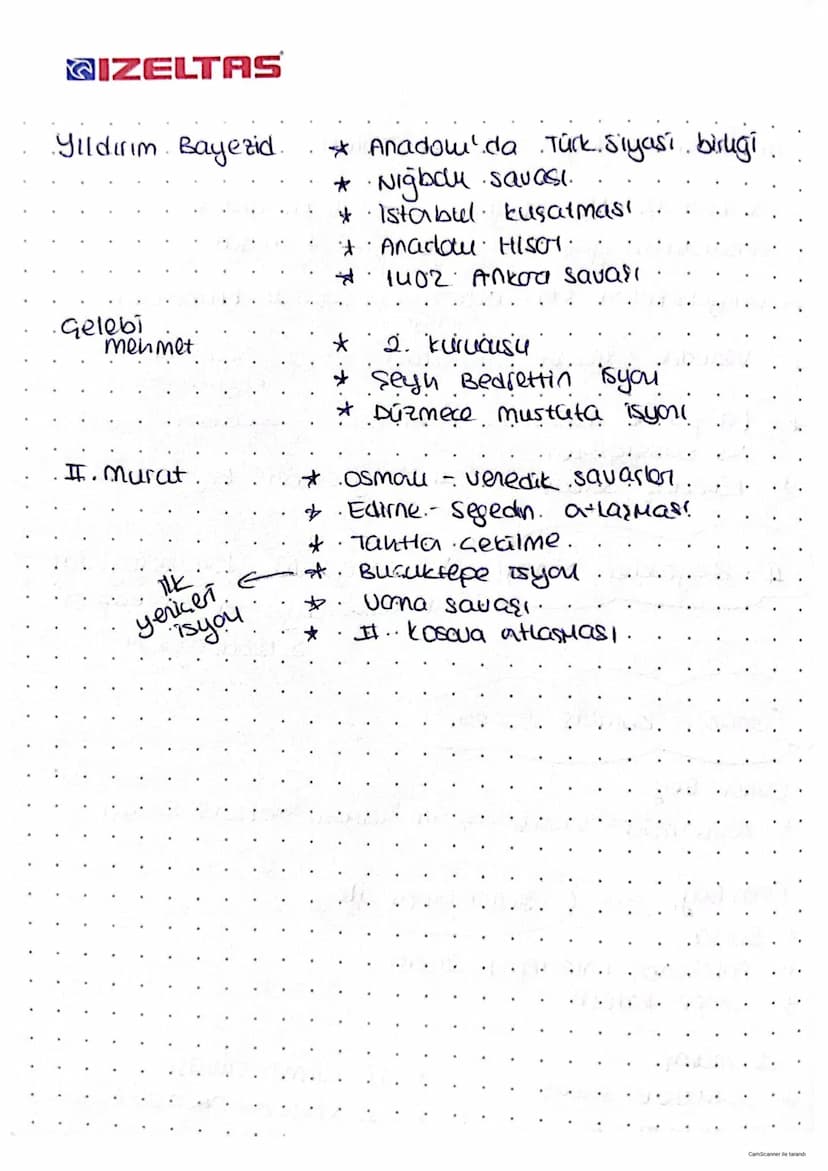 IZELTAS
Yıldırım Bayezid * Anadolu'da Türk Siyasi birliği
* Niğbolu savası.
* İstanbul kuşatması
* Anadolu Hisarı
* 1402 Ankara savaşı
Çelebi
mehmet
* 2. kurucusu
* Şeyh Bedrettin isyanı
* Düzmece mustafa isyanı
II. Murat * Osmanlı - venedik savaşları
* Edirne - Segedin atlaşması
* Tahtta çekilme
* Buçuktepe isyanı
ilk
yeniçeri
isyanı
* Varna savaşı
* II. Kosova atlaşması.
CamScanner ile tarandı